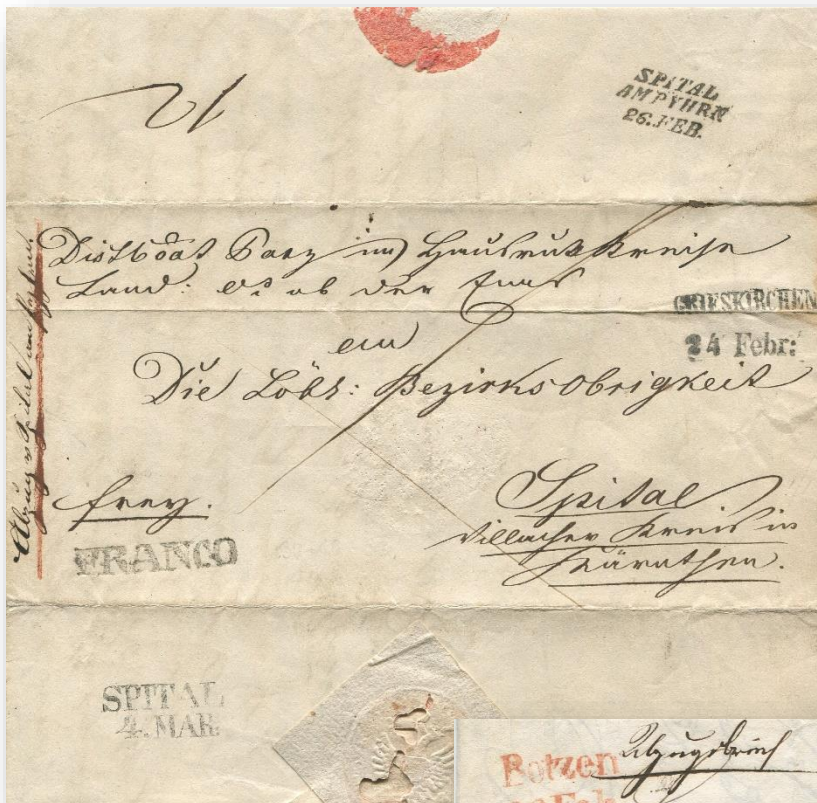 21
SPITAL
AM PYHRN
26. FEB.
Distkoat Parz im Hausruk Kreise
Land: Ös. ob der Enns
GRIESKIRCHEN
24 Febr:
an
Die Löbl: Bezirks Obrigkeit
frey.
Spital
Villacher Kreis in
Kärnthen.
FRANCO
SPITAL
4. MAR.
Botzen
Feb